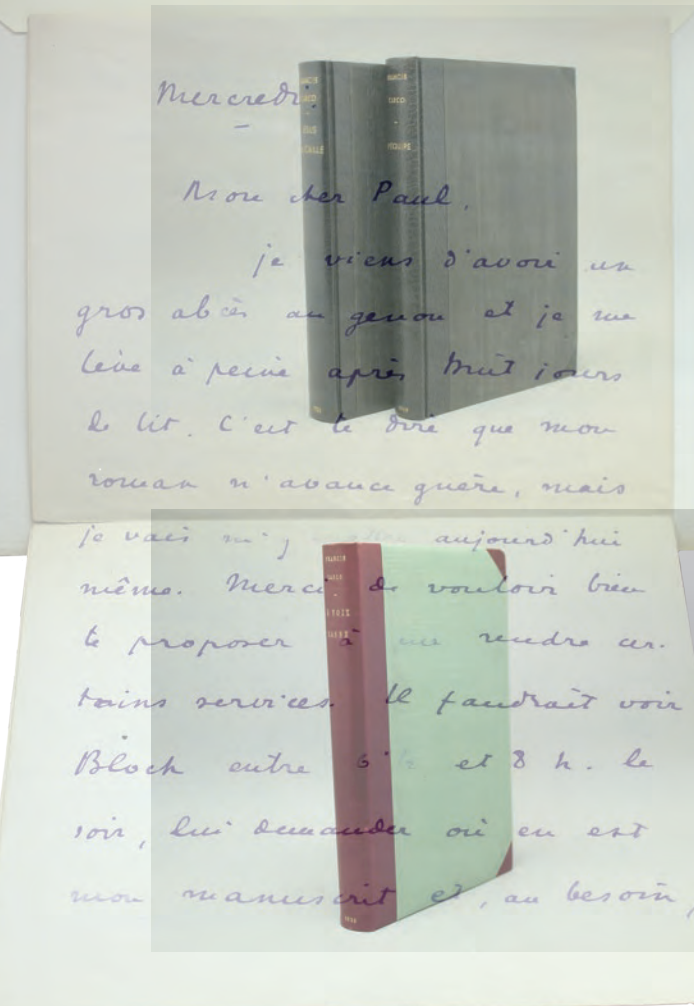 Mercredi
Mon cher Paul,
je viens d'avoir un
gros abcès au genou et je me
lève à peine après huit jours
de lit. C'est te dire que mon
roman n'avance guère, mais
je vais m'y aujourd'hui
même. Merci de vouloir bien
te proposer à me rendre cer-
tains services. Il faudrait voir
Bloch entre 6 h et 8 h. le
soir, lui demander où en est
mon manuscrit et, au besoin,
FRANCIS
CARCO
FRANCIS
CARCO
FRANCIS
CARCO